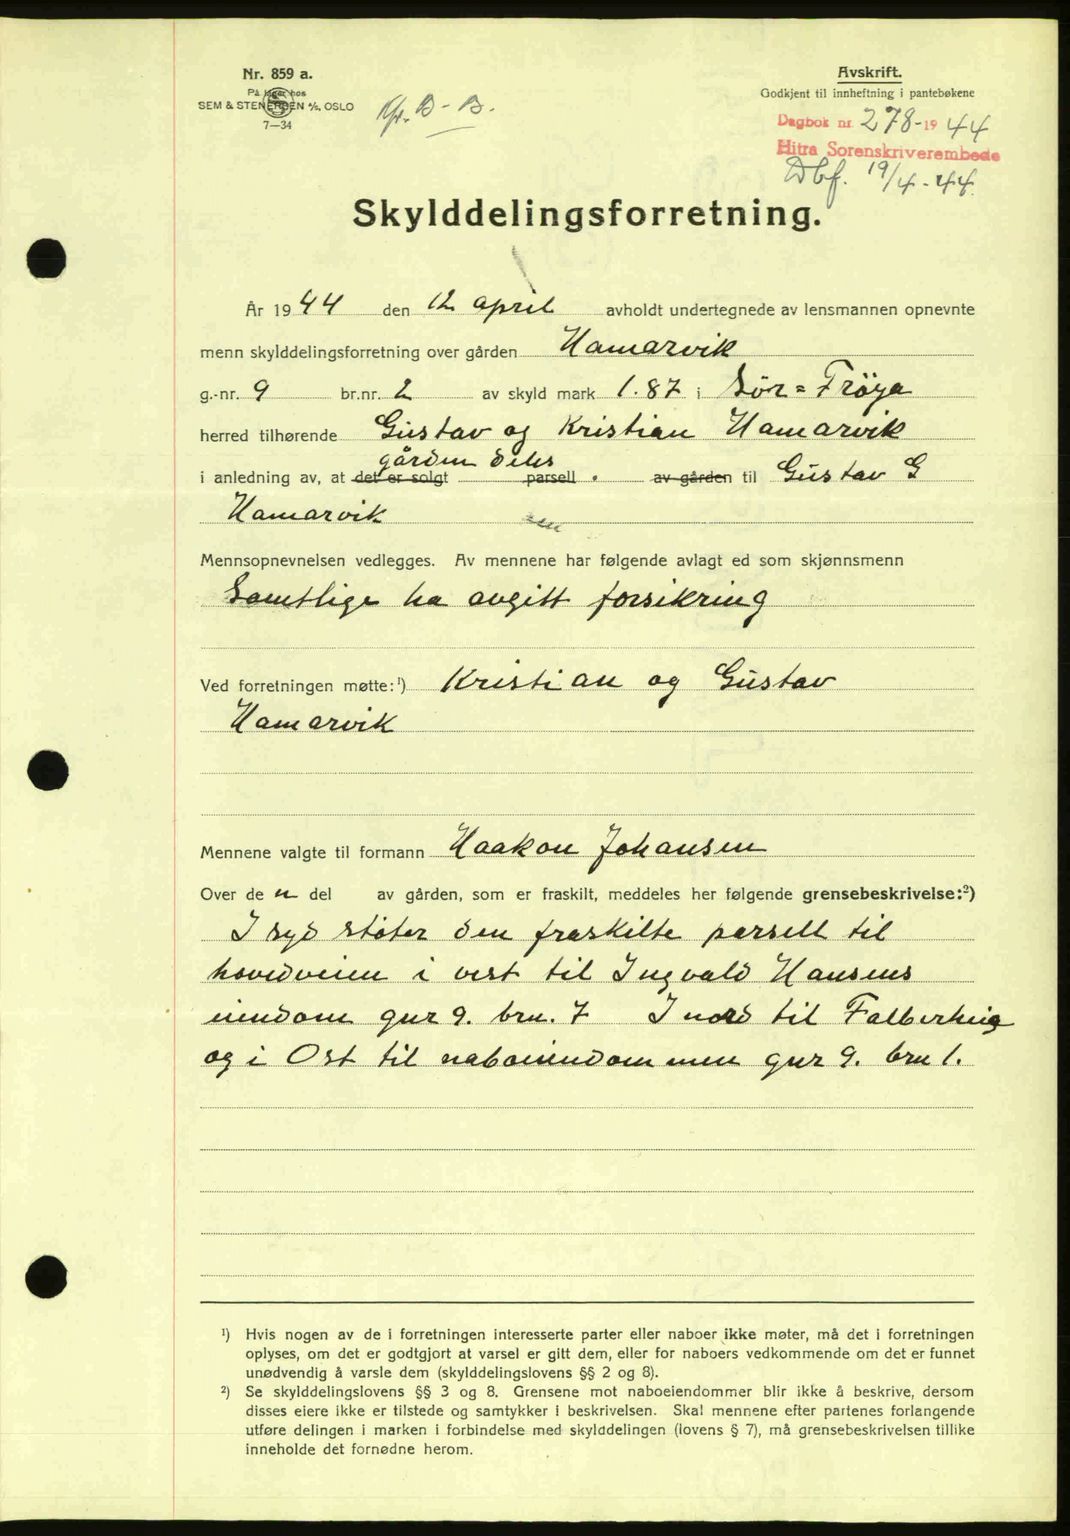 Nr. 859 a.
På lager hos
SEM & STENERSEN A/S, OSLO
7—34
B - B.
Avskrift.
Godkjent til innheftning i pantebøkene
Dagbok nr. 278-1944
Hitra Sorenskriverembede
Dbf. 19/4-44
Skylddelingsforretning.
År 1944 den 12 april avholdt undertegnede av lensmannen opnevnte
menn skylddelingsforretning over gården Hamarvik
g.-nr. 9 br.nr. 2 av skyld mark 1.87 i Sör=Fröya
herred tilhørende Gustav og Kristian Hamarvik
gården deles
i anledning av, at det er solgt parsell . av gården til Gustav G
Hamarvik
Mennsopnevnelsen vedlegges. Av mennene har følgende avlagt ed som skjønnsmenn
Samtlige ha avgitt forsikring
Ved forretningen møtte:¹) Kristian og Gustav
Hamarvik
Mennene valgte til formann Haakon Johansen
Over de n del av gården, som er fraskilt, meddeles her følgende grensebeskrivelse:²)
I syd støter den fraskilte parsell til
hovedveien i vest til Ingvald Hansens
eiendom gnr 9. brn. 7 I nord til
og i Ost til naboeiendommen gnr 9. brn 1.
¹) Hvis nogen av de i forretningen interesserte parter eller naboer ikke møter, må det i forretningen
oplyses, om det er godtgjort at varsel er gitt dem, eller for naboers vedkommende om det er funnet
unødvendig å varsle dem (skylddelingslovens §§ 2 og 8).
²) Se skylddelingslovens §§ 3 og 8. Grensene mot naboeiendommer blir ikke å beskrive, dersom
disses eiere ikke er tilstede og samtykker i beskrivelsen. Skal mennene efter partenes forlangende
utføre delingen i marken i forbindelse med skylddelingen (lovens § 7), må grensebeskrivelsen tillike
inneholde det fornødne herom.